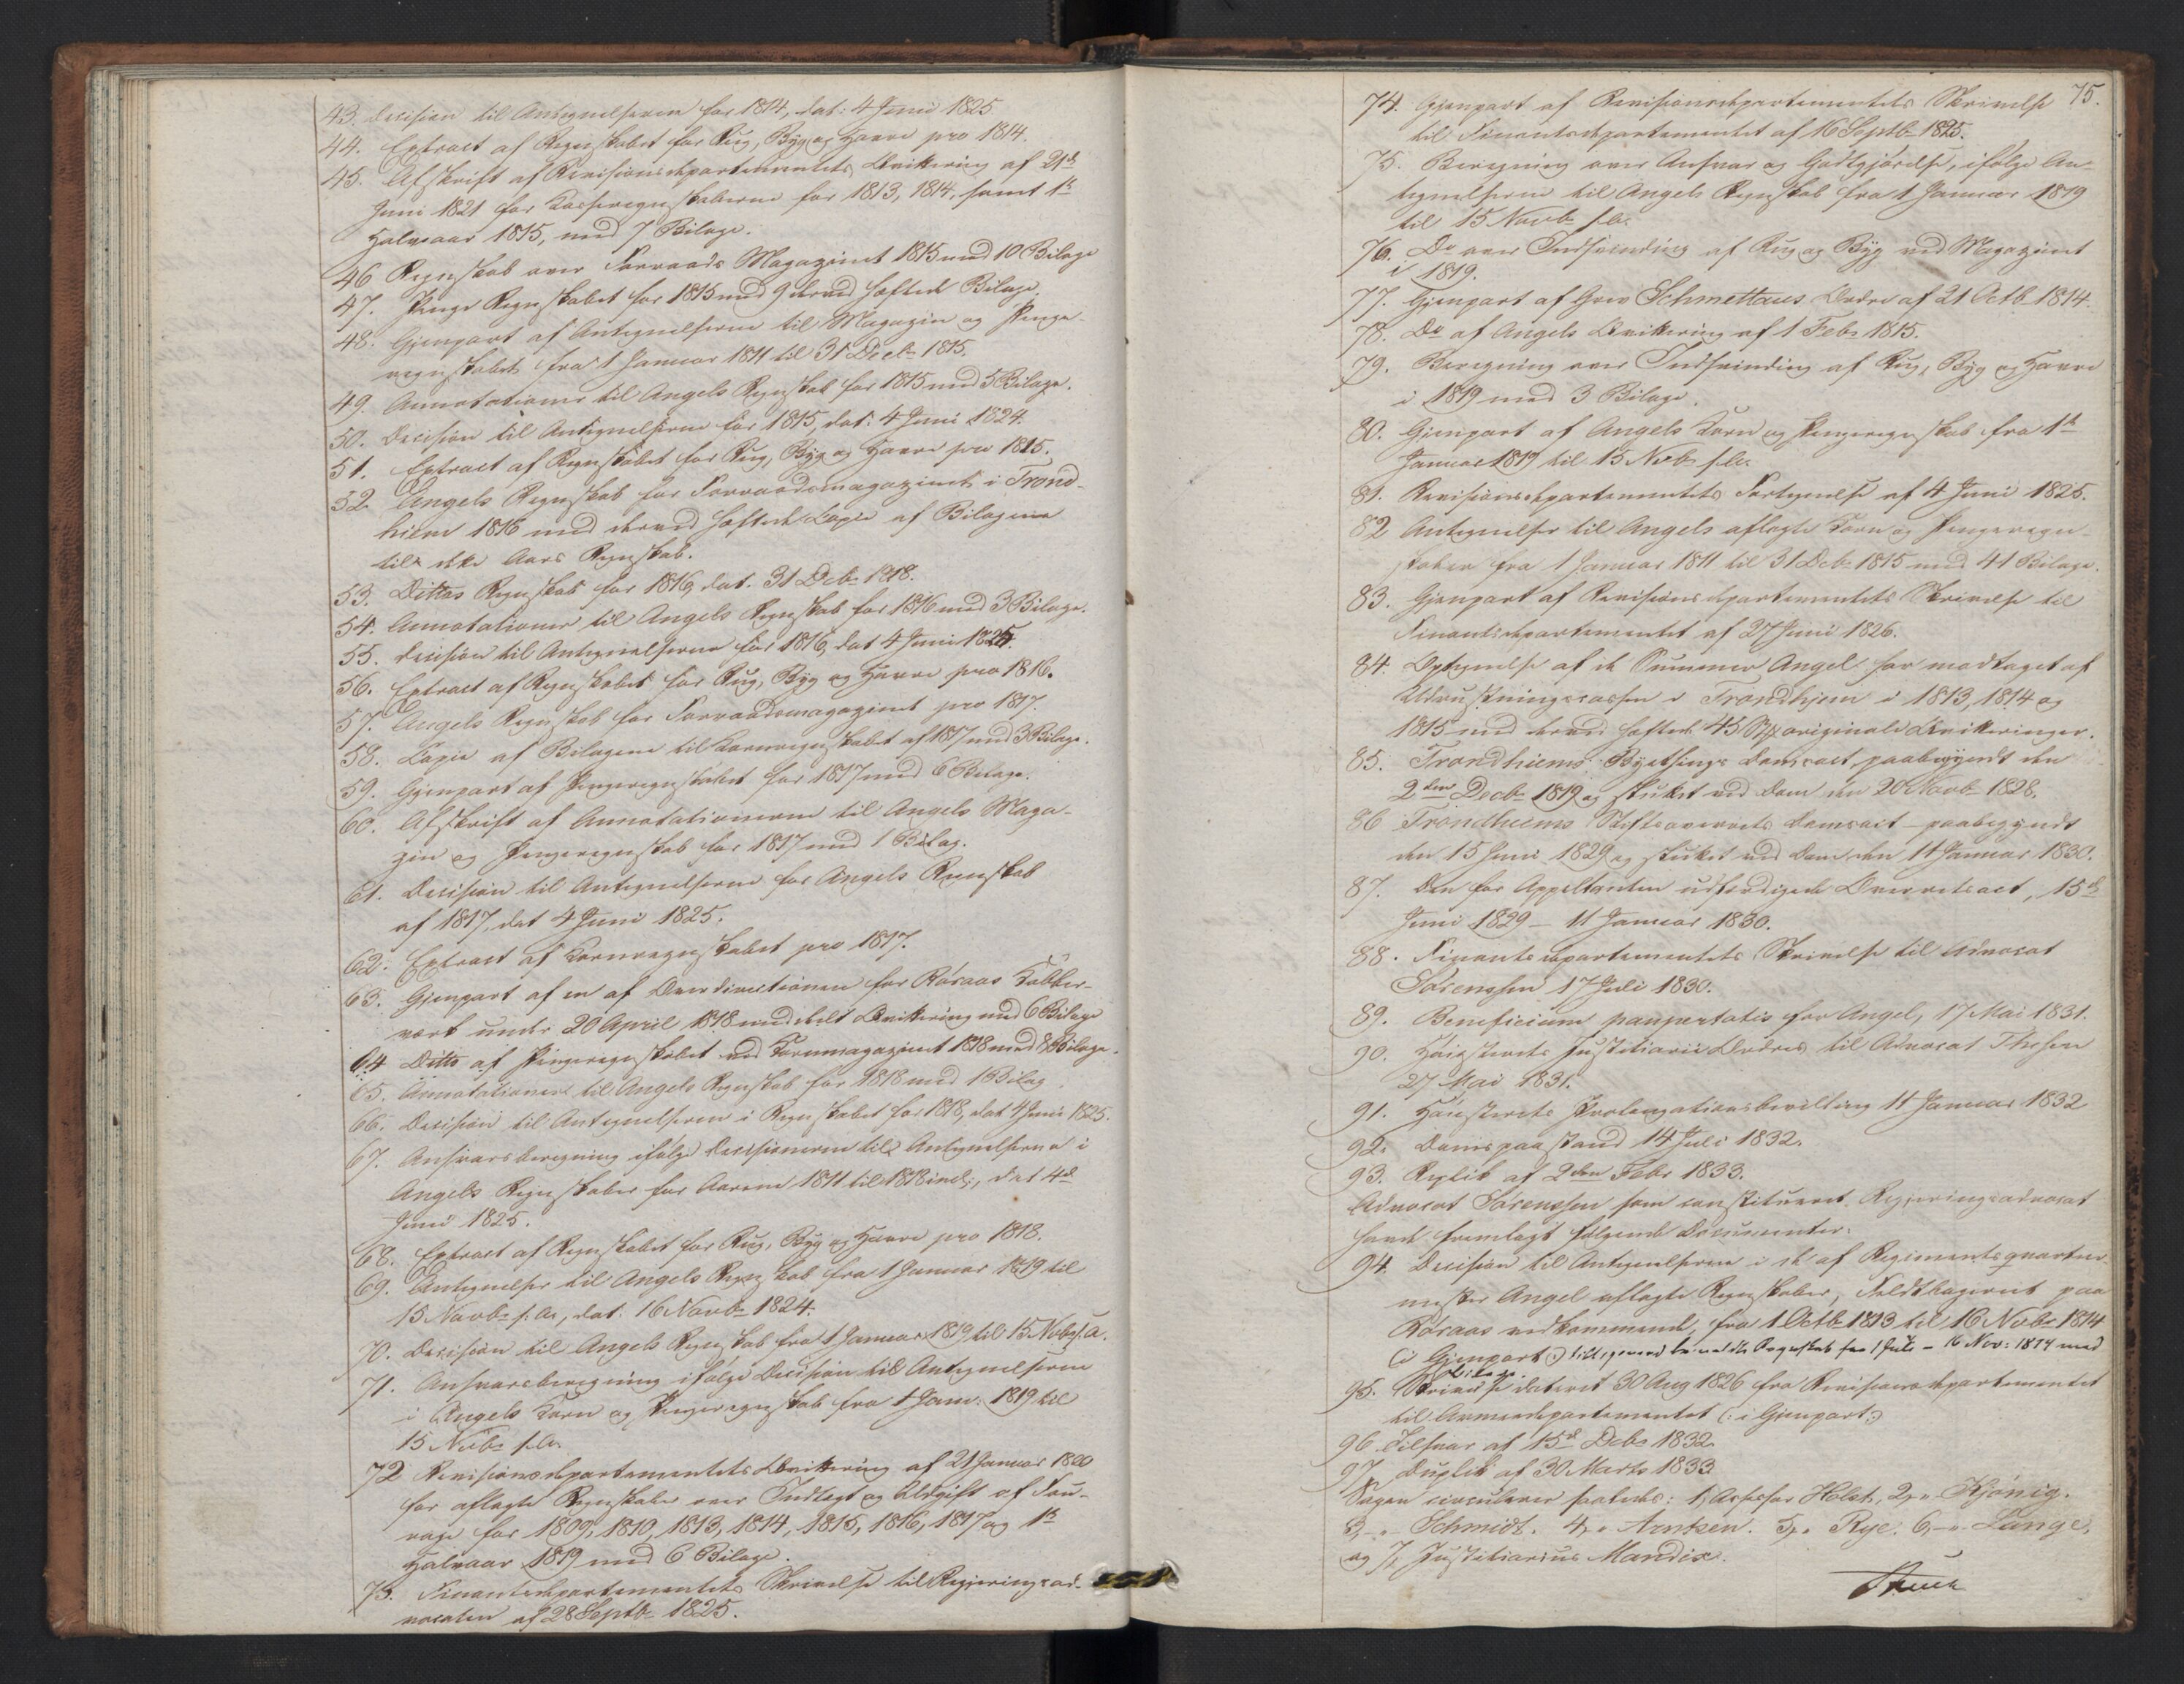 43. Decision til Antegnelserne for 1814, dat: 4 Juni 1825
44. Extract af Regnskabet for Rug, Byg og Havre pro 1814.
45. Afskrift af Revisionsdepartementets Qvittering af 21de
Juni 1821 for Casseregnskaberne for 1813, 1814 samt 1ste
Halvaar 1815, med 7 Bilage.
46 Regnskab over Forraads Magazinet 1815 med 10 Bilage
47. Penge Regnskabet for 1815 med 9 derved hæftede Bilage.
48. Gjenpart af Antegnelserne til Magazin og Penge-
regnskabet fra 1 Januar 1811 til 31 Decbr 1815.
49. Annotationer til Angels Regnskab for 1815 med 5 Bilage.
50. Decision til Antegnelserne for 1815, dat: 4 Juni 1824.
51. Extract af Regnskabet for Rug, Byg og Havre pro 1815.
52. Angels Regnskab for Forraadsmagazinet i Trond-
hiem 1816 med derved hæftede Copie af Bilagene
til dette Aars Regnskab.
53. Dittos Regnskab for 1816, dat. 31 Decbr 1818.
54. Annotationer til Angels Regnskab for 1816 med 3 Bilage.
55. Decision til Antegnelserne for 1816, dat 4 Juni 1825.
56. Extract af Regnskabet for Rug, Byg og Havre pro 1816.
57. Angels Regnskab for Forraadsmagazinet pro 1817.
58. Copie af Bilagene til Kornregnskabet af 1817 med 3 Bilage.
59. Gjenpart af Pengeregnskabet for 1817 med 6 Bilage.
60. Afskrift af Annotationerne til Angels Maga-
zin og Pengeregnskab for 1817 med 1 Bilag.
61. Decision til Antegnelserne for Angels Regnskab
af 1817, dat 4 Juni 1825.
62. Extract af Kornregnskabet pro 1817.
63. Gjenpart af en af Overdirectionen for Röraas Kobber-
værk under 20 April 1818 meddeelt Qvittering med 6 Bilage
64 Ditto af Pengeregnskabet ved Kornmagazinet 1818 med 8 Bilage.
65. Annotationer til Angels Regnskab for 1818 med 1 Bilag
66. Decision til Antegnelserne i Regnskabet for 1818, dat 4 Juni 1825.
67. Ansvarsberegning ifølge Decisionerne til Antegnelserne i
Angels Regnskaber for Aarene 1811 til 1818 incl:, dat 4de
Juni 1825.
68. Extract af Regnskabet for Rug, Byg og Havre pro 1818.
69. Antegnelser til Angels Regnskab fra 1 Januar 1819 til
15 Novbr s. A., dat. 16 Novbr 1824.
70. Decision til Angels Regnskab fra 1 Januar 1819 til 15 Novbr s. A.
71. Ansvarsberegning ifølge Decision til Antegnelserne
i Angels Korn og Pengeregnskab fra 1 Janu: 1819 til
15 Novbr s. A.
72 Revisionsdepartementets Qvittering af 21 Januar 1820
for aflagte Regnskaber over Indtægt og Udgift af Fou-
rage for 1809, 1810, 1813, 1814, 1815, 1816, 1817 og 1ste
Halvaar 1819 med 6 Bilage.
73. Finantsdepartementets Skrivelse til Regjeringsad-
vocaten af 28 Septbr 1825.
75.
74. Gjenpart af Revisionsdepartementets Skrivelse
til Finantsdepartementet af 16 Septbr 1825.
75. Beregning over Ansvar og Godtgjörelse, ifølge An-
tegnelserne til Angels Regnskab fra 1 Januar 1819
til 15 Novbr s. A.
76. Do over Indsvinding af Rug og Byg ved Magazinet
i 1819.
77. Gjenpart af Grev Schmettaus Ordre af 21 Octbr 1814.
78. Do af Angels Qvittering af 1 Febr 1815.
79. Beregning over Indsvinding af Rug, Byg og Havre
i 1819 med 3 Bilage.
80. Gjenpart af Angels Korn og Pengeregnskab fra 1ste
Januar 1819 til 15 Novbr s. A.
81. Revisionsdepartementets Fortegnelse af 4 Juni 1825.
82 Antegnelser til Angels aflagte Korn og Pengeregn-
skaber fra 1 Januar 1811 til 31 Decbr 1815 med 41 Bilage.
83. Gjenpart af Revisionsdepartementets Skrivelse til
Finantsdepartementet af 27 Juni 1826.
84. Optegnelse af de Summer Angel har modtaget af
Udrustningscassen i Trondhjem i 1813, 1814 og
1815 med derved hæftede 45 Stk originale Qvitteringer.
85. Trondhiems Byethings Domsact, paabegyndt den
2den Decbr 1819 og sluttet ved Dom den 20 Novbr 1828.
86 Trondhiems Stiftsoverrets Domsact paabegyndt
den 15 Juni 1829 og sluttet ved Dom den 11 Januar 1830.
87. Den for Appellanten udfærdigede Overretsact, 15de
Juni 1829 – 11 Januar 1830.
88. Finantsdepartementets Skrivelse til Advocat
Sörenssen 17 Juli 1830.
89. Beneficium paupertatis for Angel, 17 Mai 1831.
90. Höiesterets Justitiarii Ordres til Advocat
27 Mai 1831.
91. Höiesterets Prolongationsbevilling 11 Januar 1832
92. Domspaastand 14 Juli 1832.
93. Replik af 2den Febr 1833.
Advocat Sörenssen som constitueret Regjeringsadvocat
havde fremlagt følgende Documenter:
94. Decision til Antegnelserne i de af Regimentsqvarteer-
mester Angel aflagte Regnskaber, Feldtlazarett paa
Röraas vedkommende, fra 1 Octbr 1813 til 16 Novbr 1814
(i Gjenpart:) tilligemed bemeldte Regnskab fra 1 Juli – 16 Nov: 1814 med
Bilage.
95. Skrivelse dateret 30 Aug 1826 fra Revisionsdepartementet
til Armeedepartementet (: i Gjenpart:)
96. Tilsvar af 15de Decbr 1832.
97. Duplik af 30 Marts 1833
Sagen circulerer saaledes: 1, Assessor Holst, 2, " Kjönig.
3, " Schmidt. 4, " Arntzen. 5, " Rye. 6, " Lange,
og 7, Justitiarius Mandix.